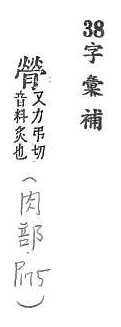 38字彙補
膋又力弔切
音料炙也
(肉部.P175)